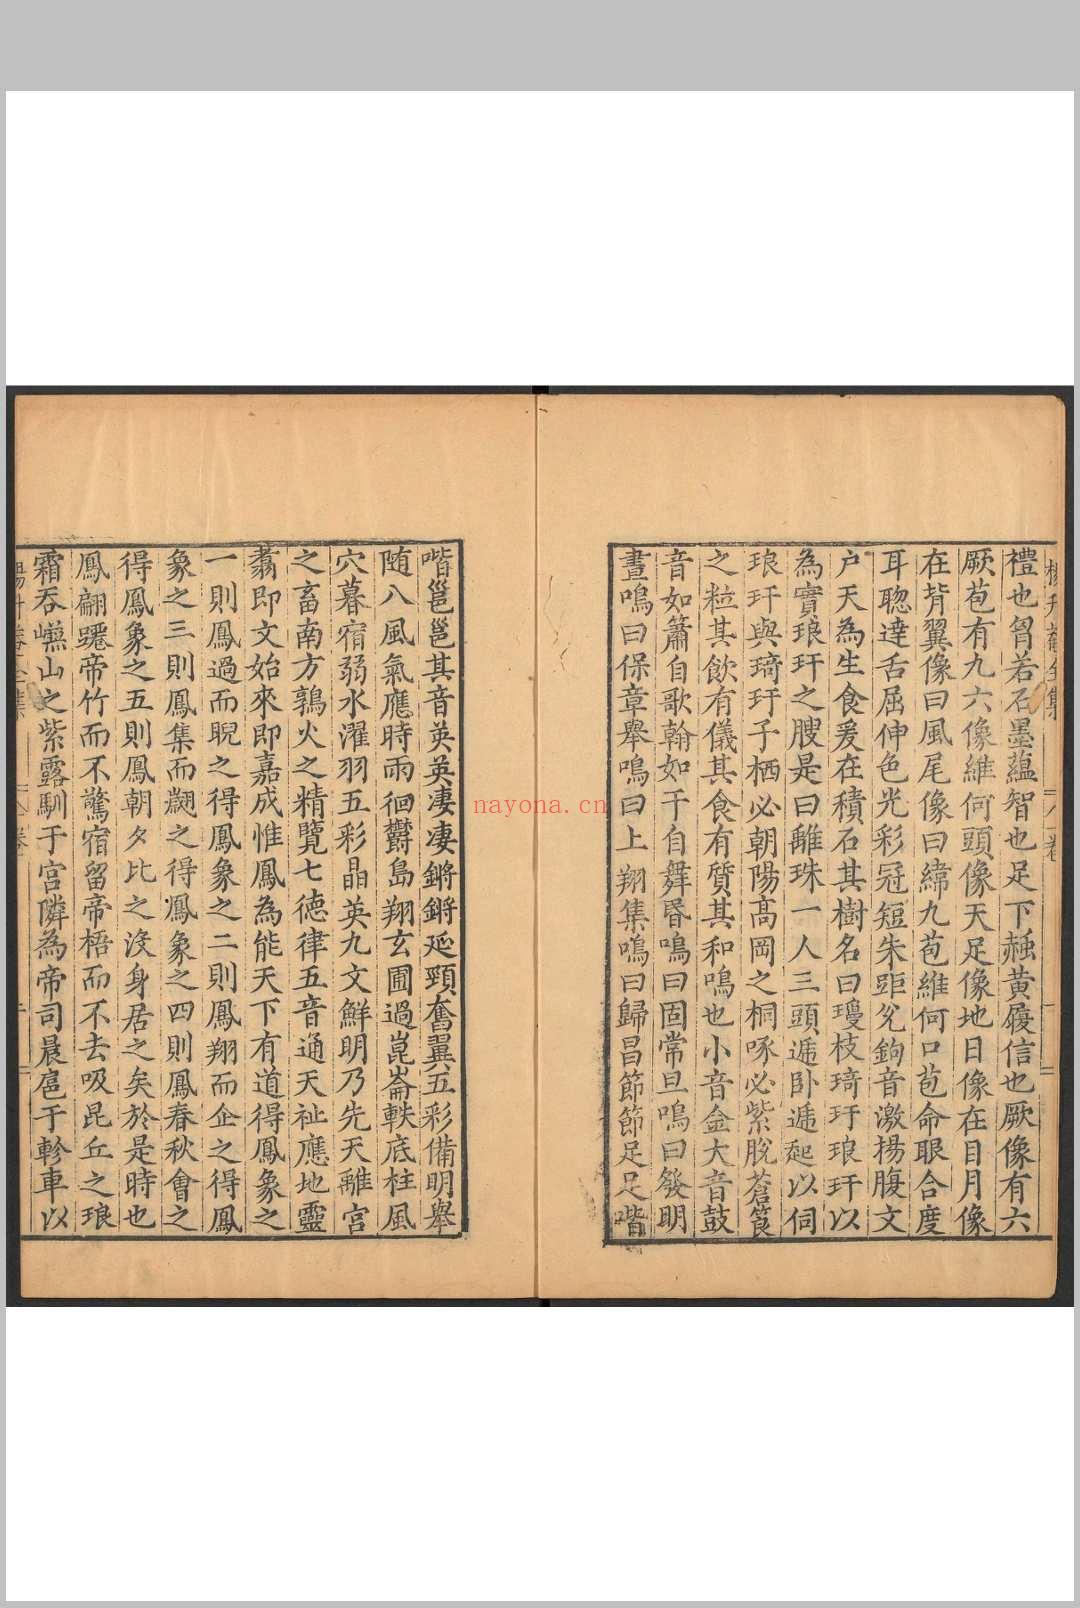 禮也胷若石墨蘊智也足下赩黃履信也厥像有六
厥苞有九六像維何頭像天足像地日像在目月像
在背翼像曰風尾像曰緯九苞維何口苞命眼合度
耳聰達舌屈伸色光彩冠短朱距銳鉤音激揚腹文
户天為生食爰在積石其樹名曰瓊枝琦玗琅玕以
為實琅玕之膄是曰離珠一人三頭遞卧遞起以伺
琅玕與琦玗子栖必朝陽高岡之桐啄必紫脫蒼筤
之粒其飲有儀其食有質其和鳴也小音金大音鼓
音如簫自歌翰如干自舞昬鳴曰固常旦鳴曰發明
晝鳴曰保章舉鳴曰上翔集鳴曰歸昌節節足足喈
喈邕邕其音英英凄凄鏘鏘延頸奮翼五彩備明舉
随八風氣應時雨徊欝島翔玄圃過崑崙軼底柱風
穴暮宿弱水濯羽五彩晶英九文鮮明乃先天離宮
之畜南方鶉火之精覽七德律五音通天祉應地靈
翥即文始來即嘉成惟鳳為能天下有道得鳳象之
一則鳳過而睨之得鳳象之二則鳳翔而企之得鳳
象之三則鳳集而翽之得鳳象之四則鳳春秋會之
得鳳象之五則鳳朝夕比之沒身居之矣於是時也
鳳翩躚帝竹而不驚宿留帝梧而不去吸昆丘之琅
霜吞嶫山之紫露馴于宮隣為帝司晨扈于軫車以
nayona.cn